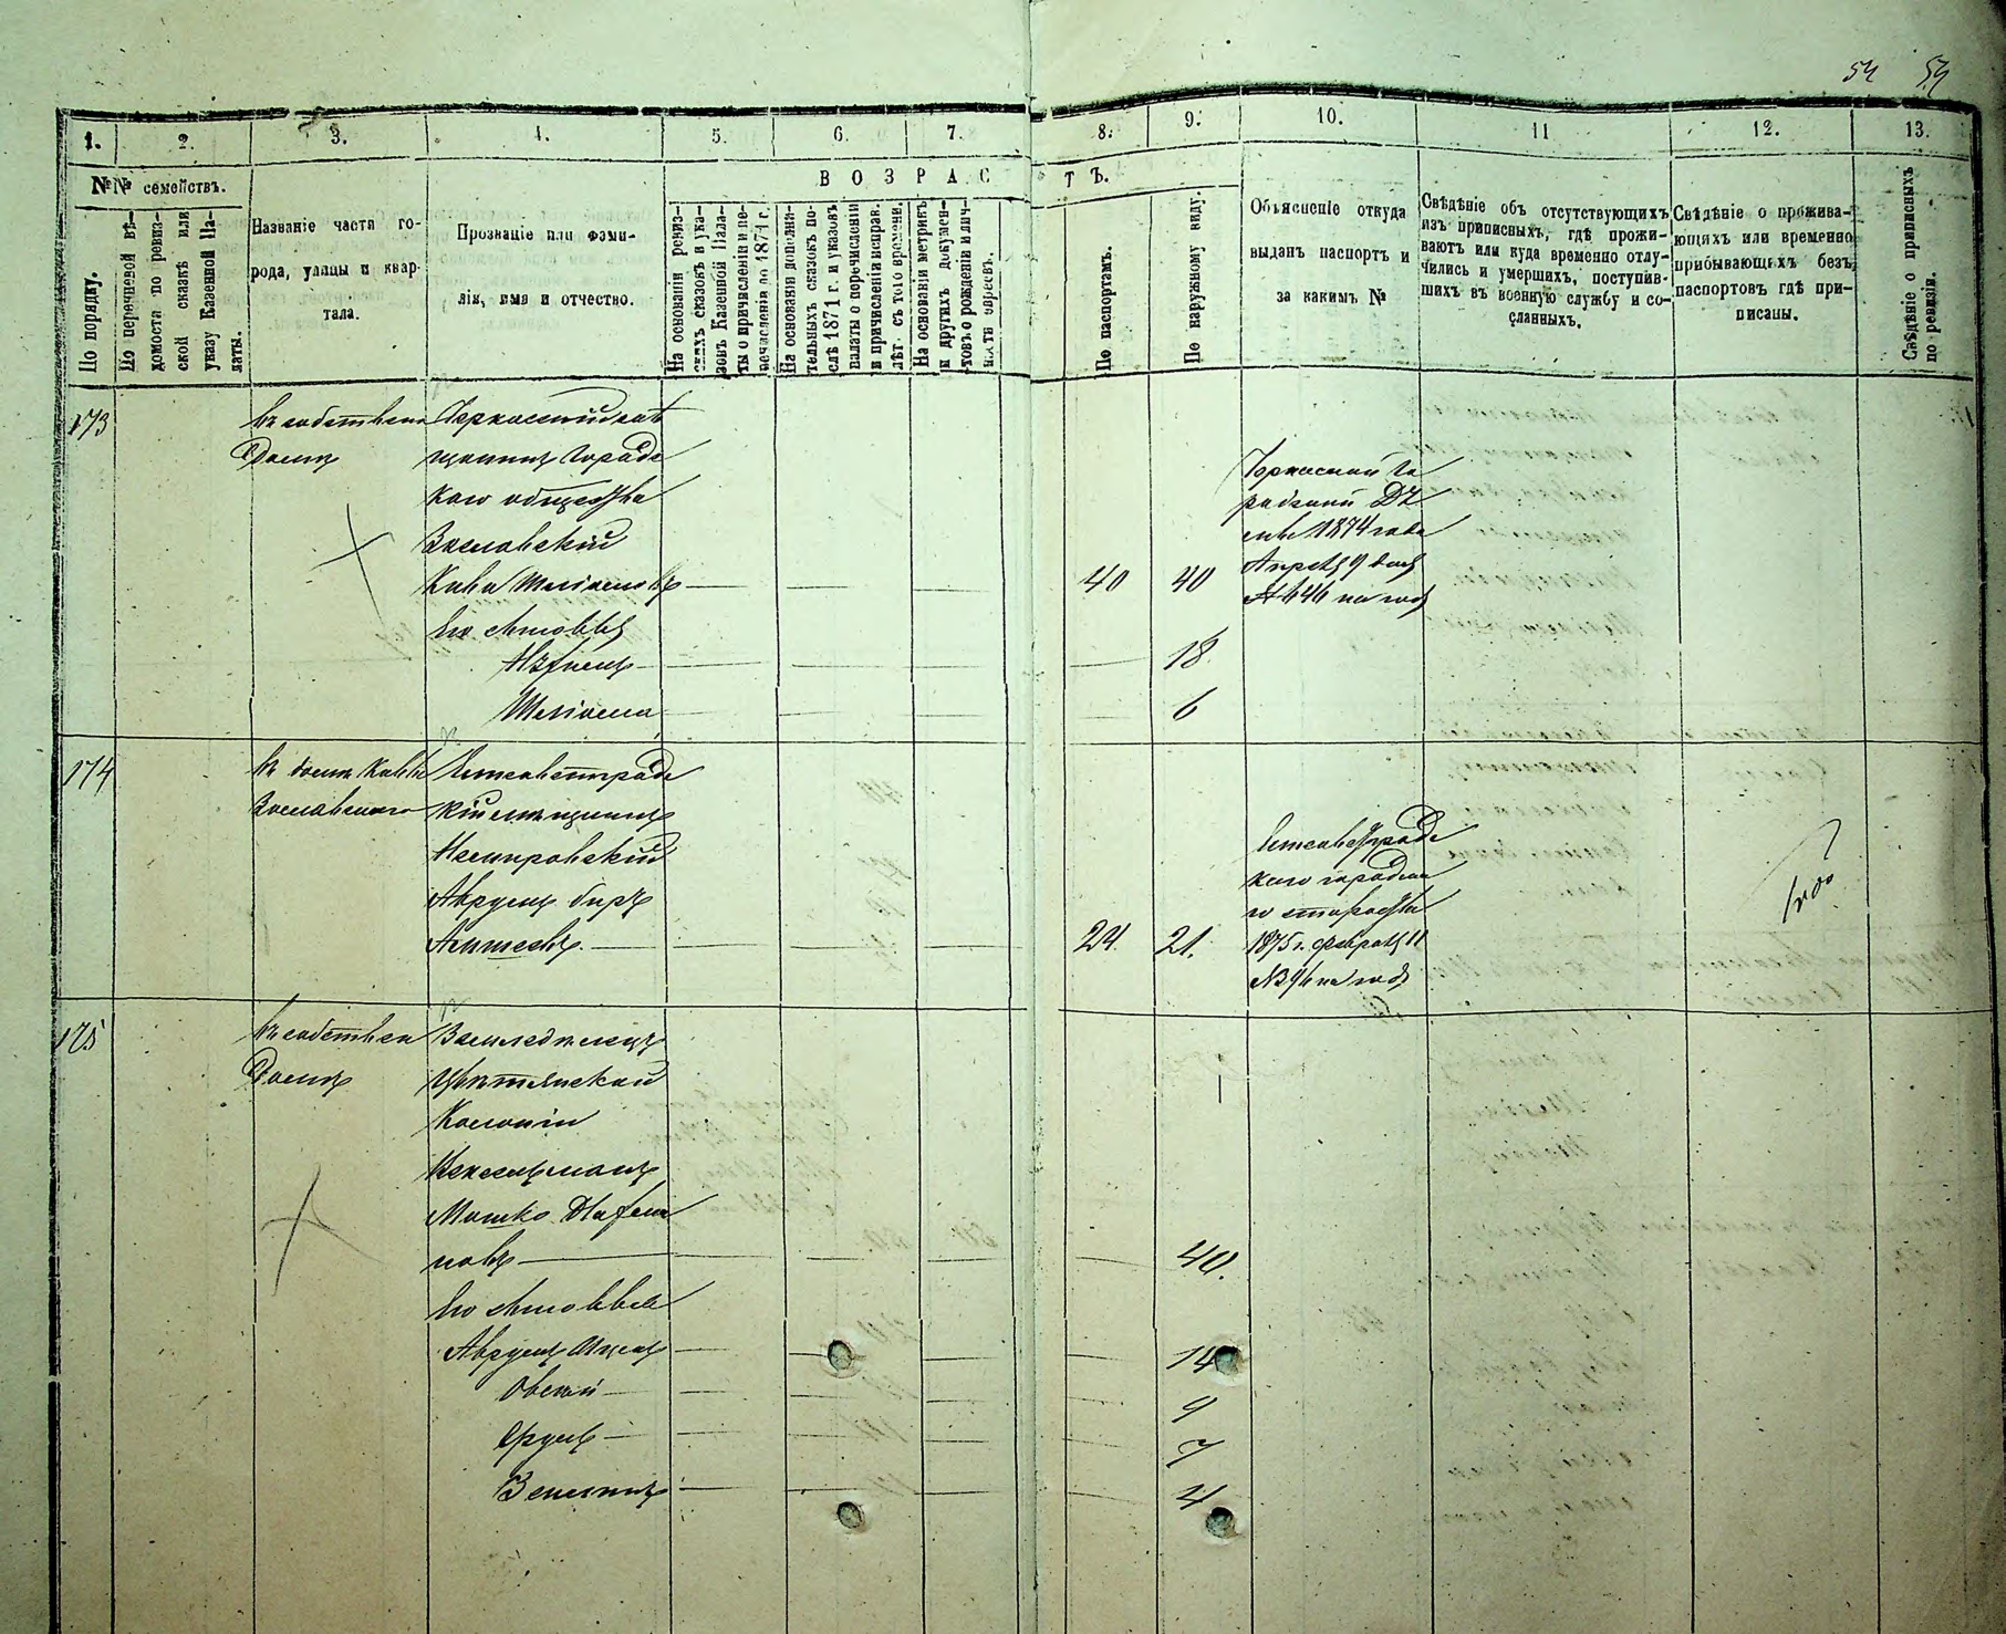 54 54
1. 2. 3. 4. 5. 6. 7. 8. 9. 10. 11 12. 13.
№№ семействъ.
В О З Р А С Т Ъ.
По порядку.
По перечневой вѣ-
домости по ревиз-
ской сказкѣ или
указу Казенной Па-
латы.
Названіе части го-
рода, улицы и квар-
тала.
Прозваніе или фами-
лія, имя и отчество.
На основаніи ревиз-
скихъ сказокъ и ука-
зовъ Казенной Пала-
ты о причисленіи и пе-
речисленіи по 1871 г.
На основаніи дополни-
тельныхъ сказокъ по-
слѣ 1871 г. и указовъ
палаты о перечисленіи
и причисленіи исправ.
лѣт. съ того времени.
На основаніи метрикъ
и другихъ докумен-
товъ о рожденіи и лич-
ности евреевъ.
По паспортамъ.
По наружному виду.
Объясненіе откуда
выданъ паспортъ и
за какимъ №
Свѣдѣніе объ отсутствующихъ
изъ приписныхъ, гдѣ прожи-
ваютъ или куда временно отлу-
чились и умершихъ, поступив-
шихъ въ военную службу и со-
сланныхъ.
Свѣдѣніе о прожива-
ющихъ или временно
прибывающихъ безъ
паспортовъ гдѣ при-
писаны.
Свѣдѣніе о приписныхъ
по ревизіи.
173
въ собствен
домѣ
щанинъ Городс
каго общества
Заславскій
Его сыновья
Шліома
40 40
18
6
радской
1874 года
Апреля 9 дня
№ 646 на годъ
174
въ домѣ
Заславскаго
Елисаветградс
кій мѣщанинъ
Немировскій
Аврумъ Беръ
24. 21.
Елисаветградс
каго городска
го старосты
1875 г. февраля 11
на годъ
175
въ собствен
домѣ
Земледѣлецъ
Колоніи
Мошко
новъ
40.
Его сыновья
Аврумъ Ицекъ 14
Овсѣй 9
Срулъ 7
4